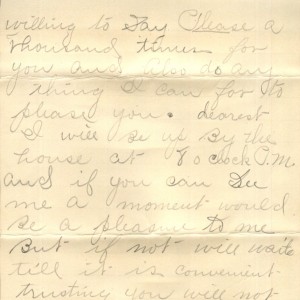 willing to Say Please a
thousand times for
you and Also do any
thing I can for to
please you. dearest
I will be up By the
house at 8 o clock P.M.
and if you can See
me a moment would
Be a pleasure to me
But if not will wait
till it is convenient
trusting you will not